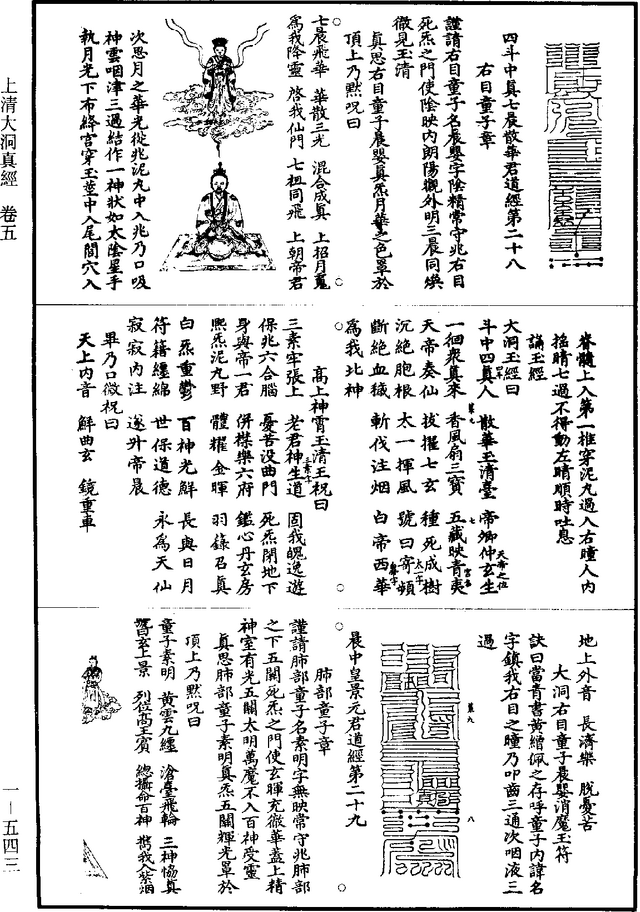 四斗中真七晨散華君道經第二十八
右目童子章
謹請右目童子名晨嬰字陰精常守兆右目
死炁之門使陰映內朗陽觀外明三晨同煥
徹見玉清
真思右目童子晨嬰真炁月華之色罩於
頂上乃默呪曰
七晨飛華　華散三光　混合成真　上招月魂
為我降靈　啓我仙門　七祖同飛　上朝帝君
次思月之華光從兆泥丸中入兆乃口吸
神雲咽津三過結作一神狀如太陰星手
執月光下布絳宮穿玉莖中入尾閭穴入
脊髓上入第一椎穿泥丸過入右瞳人內
搖睛七過不得動左睛順時吐息
誦玉經
大洞玉經曰
斗中四真人　散華玉清臺　帝卿仲玄生
一徊衆真來　香風扇三寶　五藏映青夷
天帝奏仙　拔擢七玄　種死成樹
沉絶胞根　太一揮風　號曰寄頻
斷絶血穢　斬伐注烟　白帝西華
為我北神
高上神霄玉清王祝曰
三素牢張上　老君神生道　固我魄逸遊
保兆六合腦　憂苦沒曲門　死炁閉地下
身與帝一君　併襟樂六府　鑑心丹玄房
熙熙泥丸野　體耀金暉　羽錄召真
白炁重鬱　百神光鮮　長與日月
符籍纏綿　世保道德　永為天仙
寂寂內注　遂升帝晨
畢乃口微祝曰
天上內音　鮮曲玄　鏡重車
地上外音　長濟樂　脫憂苦
大洞右目童子晨嬰消魔玉符
訣曰當青書黃繒佩之存呼童子內諱名
字鎮我右目之瞳乃叩齒三通次咽液三
過
晨中皇景元君道經第二十九
肺部童子章
謹請肺部童子名素明字無映常守兆肺部
之下五關死炁之門使玄暉充徹華蓋上精
神室有光五關太明萬魔不入百神受靈
真思肺部童子素明真炁五關輝光罩於
頂上乃默呪曰
童子素明　黃雲九纏　滄臺飛輪　三神協真
上景　列位高玉賓　總攝命百神　携我入紫烟
上清大洞真經　卷五
一—五四三